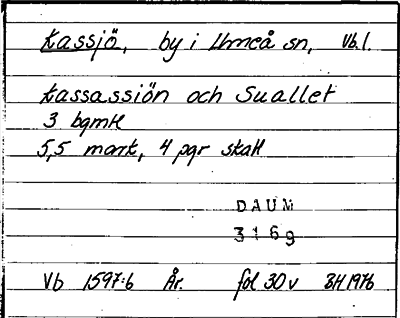 Kassjö, by i Umeå sn, Vb.l.
Kassassiön och Suallet
3 bgmtl
5,5 mark, 4 pgr skatt
DAUM
3169
Vb 1597:6 År. fol 30 v BH 1976